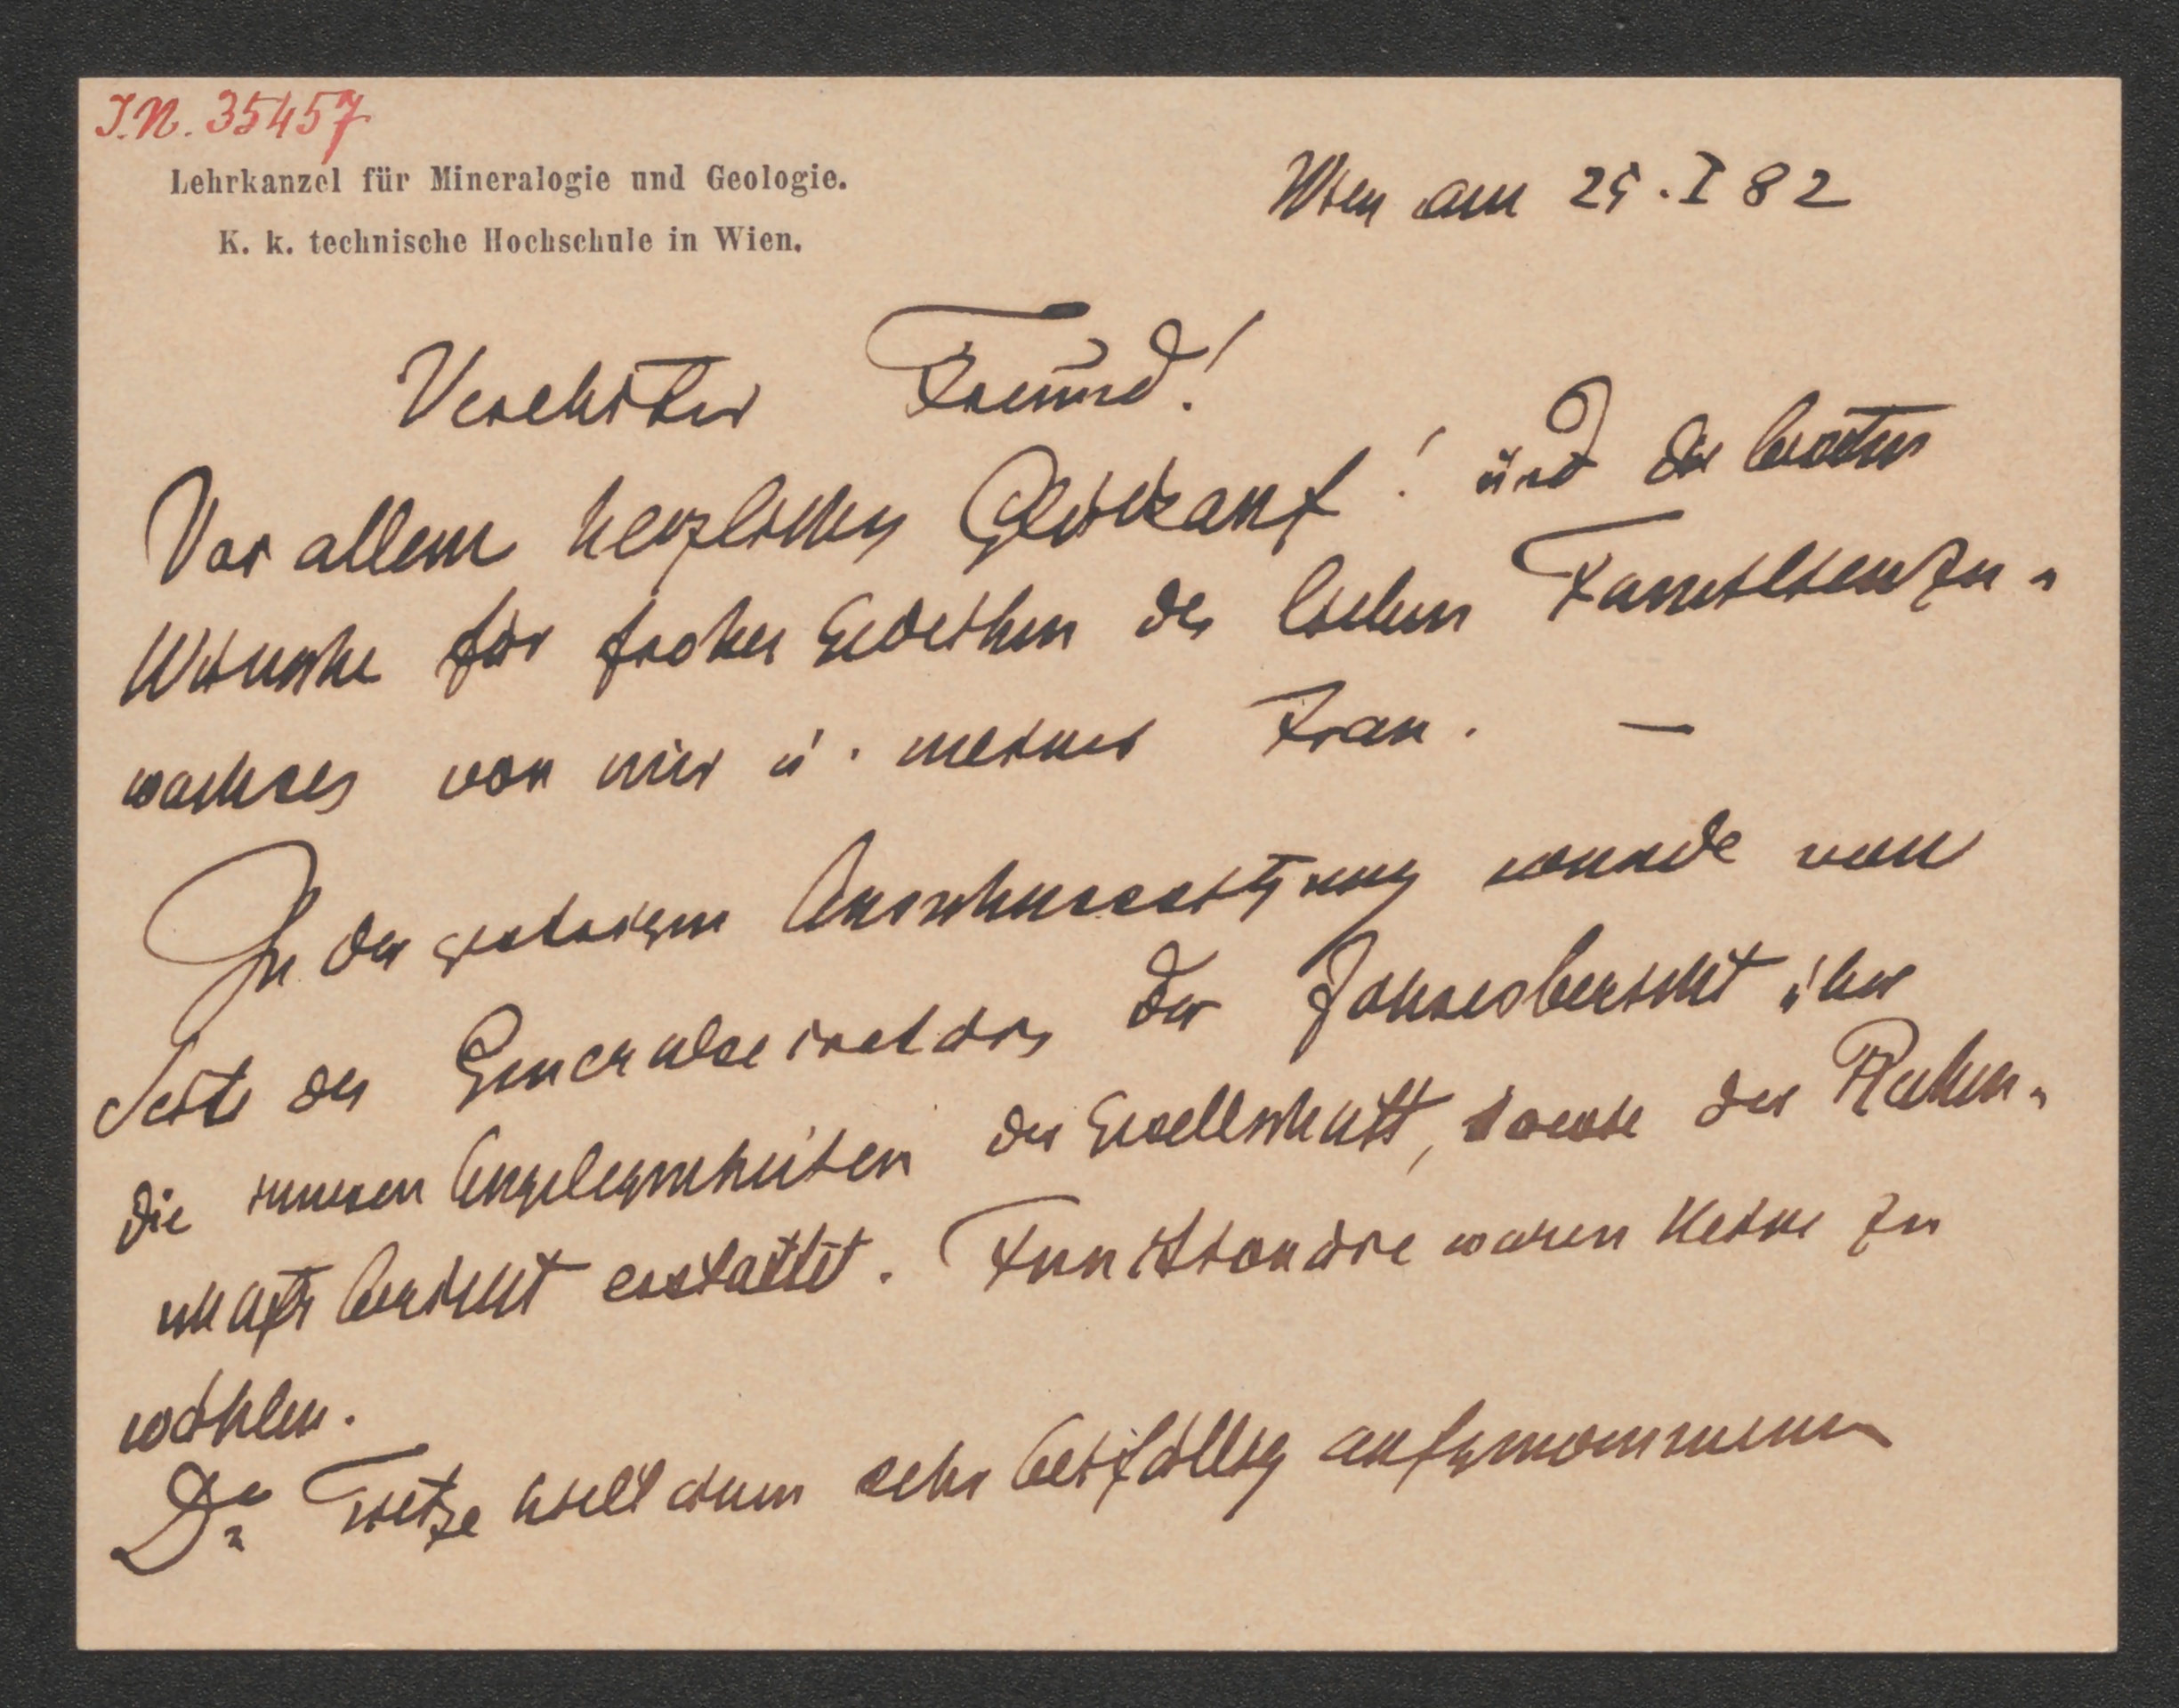 I.N. 35457
Lehrkanzel für Mineralogie und Geologie.
K. k. technische Hochschule in Wien.
Wien am 25. I 82
Verehrter Freund!
Vor allem herzliches Glückauf! und die besten
Wünsche für frohes Gedeihen des lieben Familienzu-
wachses von mir u. meiner Frau. —
In der gestrigen Ausschusssitzung wurde von
Seite des Generalsecretärs der Jahresbericht über
die inneren Angelegenheiten der Gesellschaft, sowie der Rechen-
schaftsbericht erstattet. Functionäre waren keine zu
wählen.
Dr Tietze will dann sehr beifällig aufgenommenen